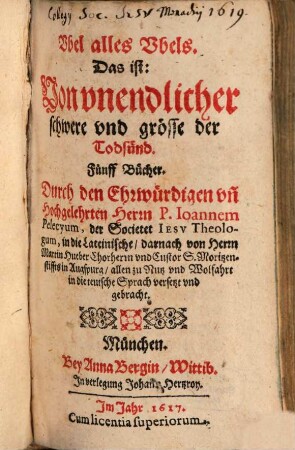 Collegij Soc. Iesv Monachij 1619.
Vbel alles Vbels.
Das ist:
Von vnendlicher
schwere vnd grösse der
Todsünd.
Fünff Bücher.
Durch den Ehrwürdigen vñ
Hochgelehrten Herrn P. Ioannem
Pelecyum, der Societet IESV Theolo-
gum, in die Lateinische / darnach von Herrn
Martin Hueber Chorherrn vnd Custor S. Moritzen-
stiffts in Augspurg / allen zu Nutz vnd Wolfahrt
in die teutsche Sprach versetzt vnd
gebracht.
München.
Bey Anna Bergin / Wittib.
In verlegung Johann Hertzroy.
Im Jahr 1617.
Cum licentia superiorum.